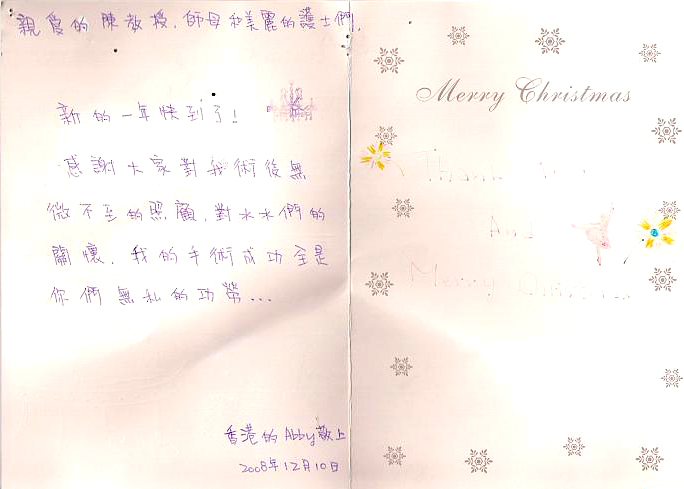 親愛的陳教授，師母和美麗的護士們，
新的一年快到了！
感謝大家對我術後無
微不至的照顧，對水水們的
關懷，我的手術成功全是
你們無私的功勞...
香港的Abby敬上
2008年12月10日
Merry Christmas
Thank
And
Merry Christmas